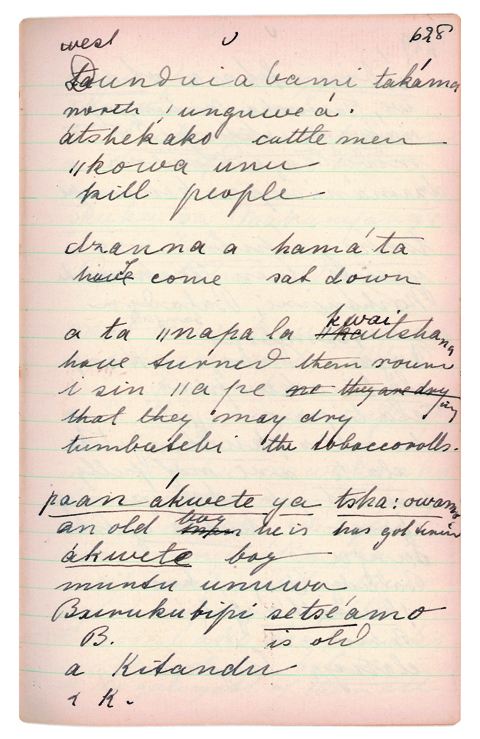 west 628
Daundvi a bami takáma
north ! unguwe á.
átshekako cattle men
"kowa unu
kill people
dzanna a hamá ta
have come sat down
a ta "napa la kwai
have turned them roun
i sin "a pe no they are dry
that they may dry
tumbatebi the tobaccorolls.
paan ákwete ya tsha: owamo
an old boy he is has got
ákwete boy
muntu unuwa
setsé'amo
B. is old
a Kitandu
K.